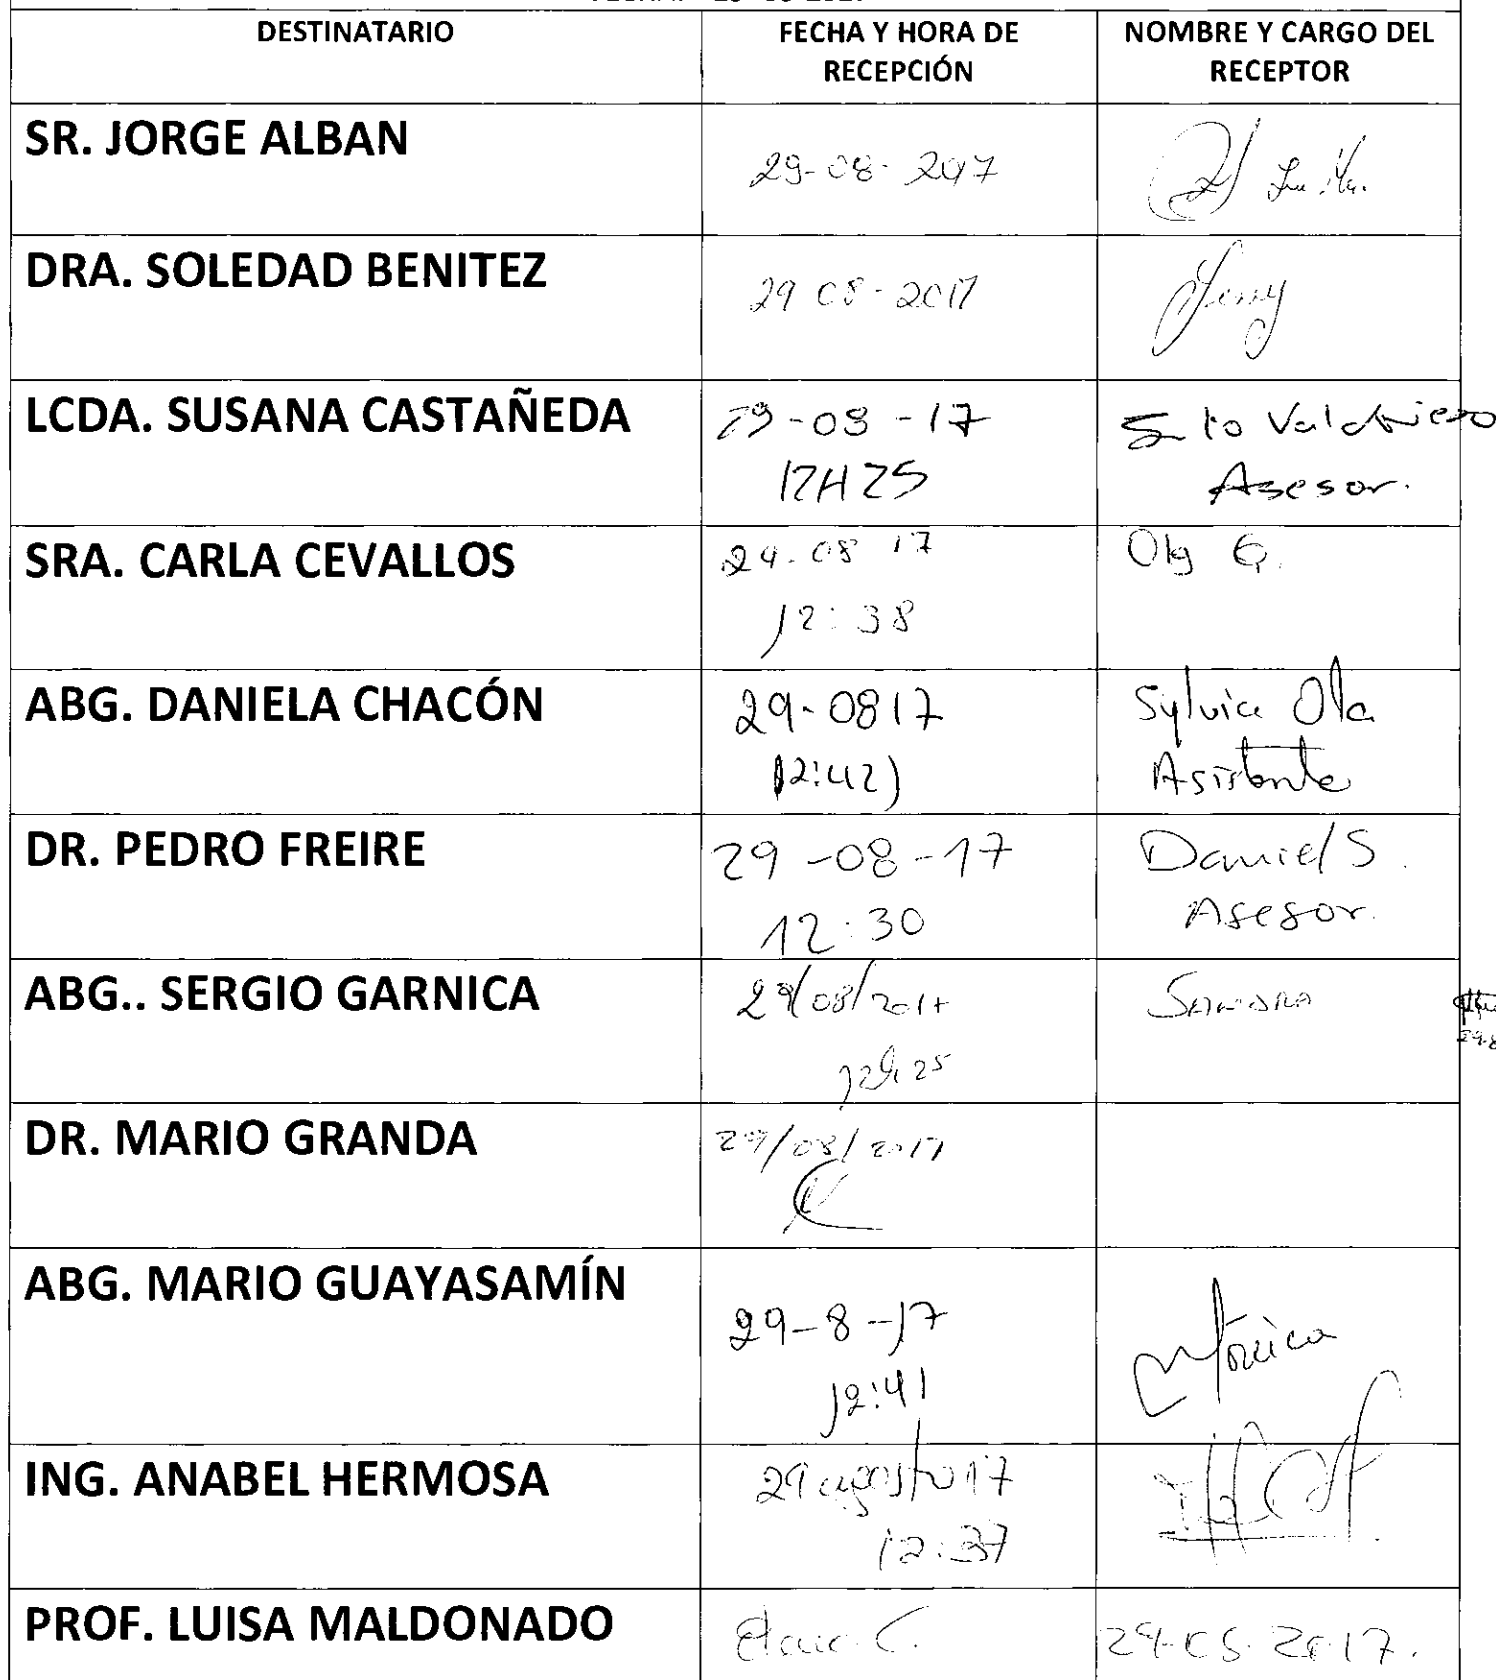 DESTINATARIO
FECHA Y HORA DE
RECEPCIÓN
NOMBRE Y CARGO DEL
RECEPTOR
SR. JORGE ALBAN
29-08-2017
DRA. SOLEDAD BENITEZ
29 08-2017
Jenny
LCDA. SUSANA CASTAÑEDA
29-08-17
12H25
Valdivieso
Asesor.
SRA. CARLA CEVALLOS
29-08 17
12:38
Olg G.
ABG. DANIELA CHACÓN
29-0817
12:42)
Sylvia Ola
Asistente
DR. PEDRO FREIRE
29-08-17
12:30
Daniel S.
Asesor.
ABG.. SERGIO GARNICA
29/08/2017
12h25
SANDRA
DR. MARIO GRANDA
29/08/2017
ABG. MARIO GUAYASAMÍN
29-8-17
12:41
Mónica
ING. ANABEL HERMOSA
29 agosto 17
12:37
PROF. LUISA MALDONADO
29-08-2017.